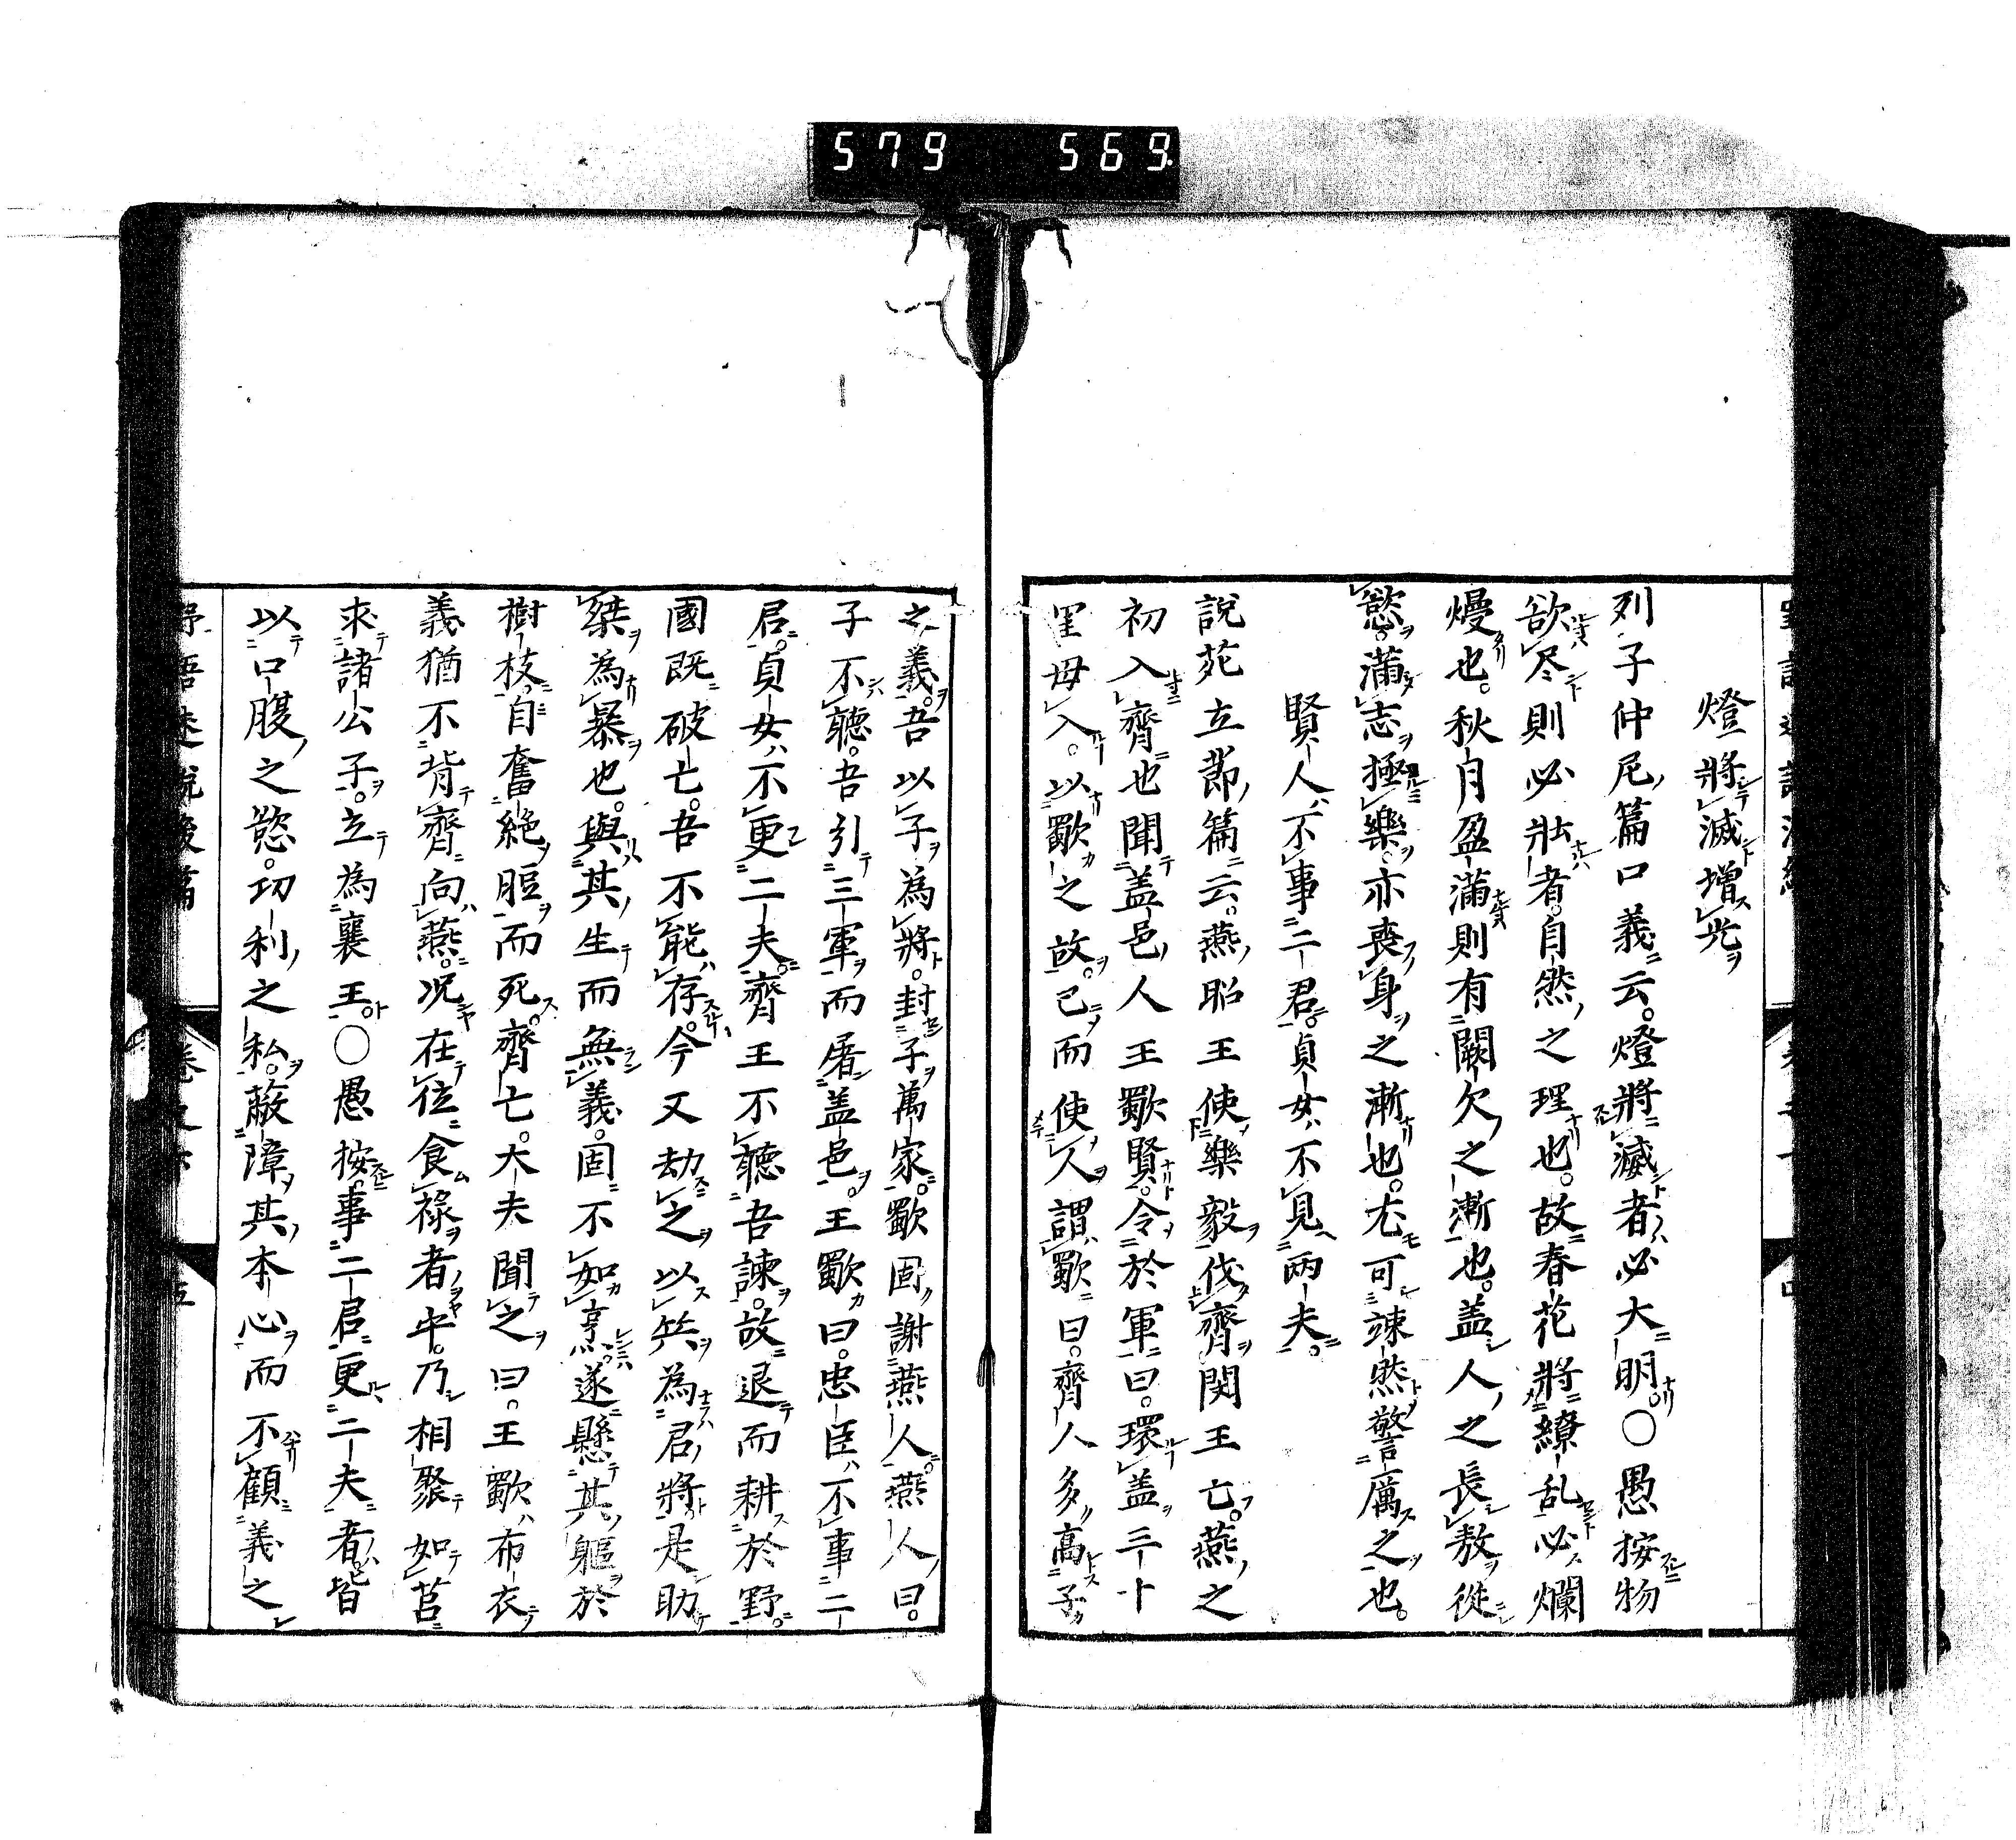 579 569
燈將滅增光
列子仲尼篇口義云。燈將滅者必大明。○愚按物
欲尽則必壯者。自然之理也。故春花將繚乱必爛
熳也。秋月盈滿則有闕欠之漸也。盖人之長敖從
慾。滿志極樂。亦喪身之漸也。尤可竦然警厲之也。
賢人不事二君。貞女不見兩夫。
說苑立節篇云。燕昭王使樂毅伐齊閔王亡。燕之
初入齊也聞盖邑人王歜賢。令於軍曰。環盖三十
里毋入。以歜之故。已而使人謂歜曰。齊人多高子
之義。吾以子為將。封子萬家。歜固謝燕人。燕人曰。
子不聽。吾引三軍而屠盖邑。王歜曰。忠臣不事二
君。貞女不更二夫。齊王不聽吾諫。故退而耕於野。
國既破亡。吾不能存。今又劫之以兵為君將。是助
桀為暴也。與其生而無義。固不如烹。遂懸其軀於
樹枝。自奮絕脰而死。齊亡。大夫聞之曰。王歜布衣
義猶不背齊向燕。况在位食祿者乎。乃相聚如莒
求諸公子。立為襄王。○愚按。事二君更二夫者皆
以口腹之慾。功利之私。蔽障其本心而不顧義之